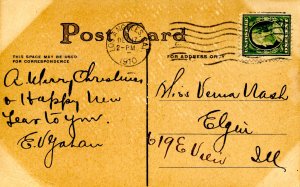 Post Card
THIS SPACE MAY BE USED
FOR CORRESPONDENCE
FOR ADDRESS ON
2-PM
1910
A Merry Christmas
& Happy New
Year to you.
Miss Verna Nash
Elgin
619 E View Ill